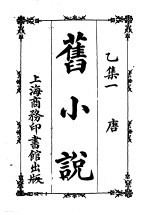 乙集一　唐
舊小說
上海商務印書館出版